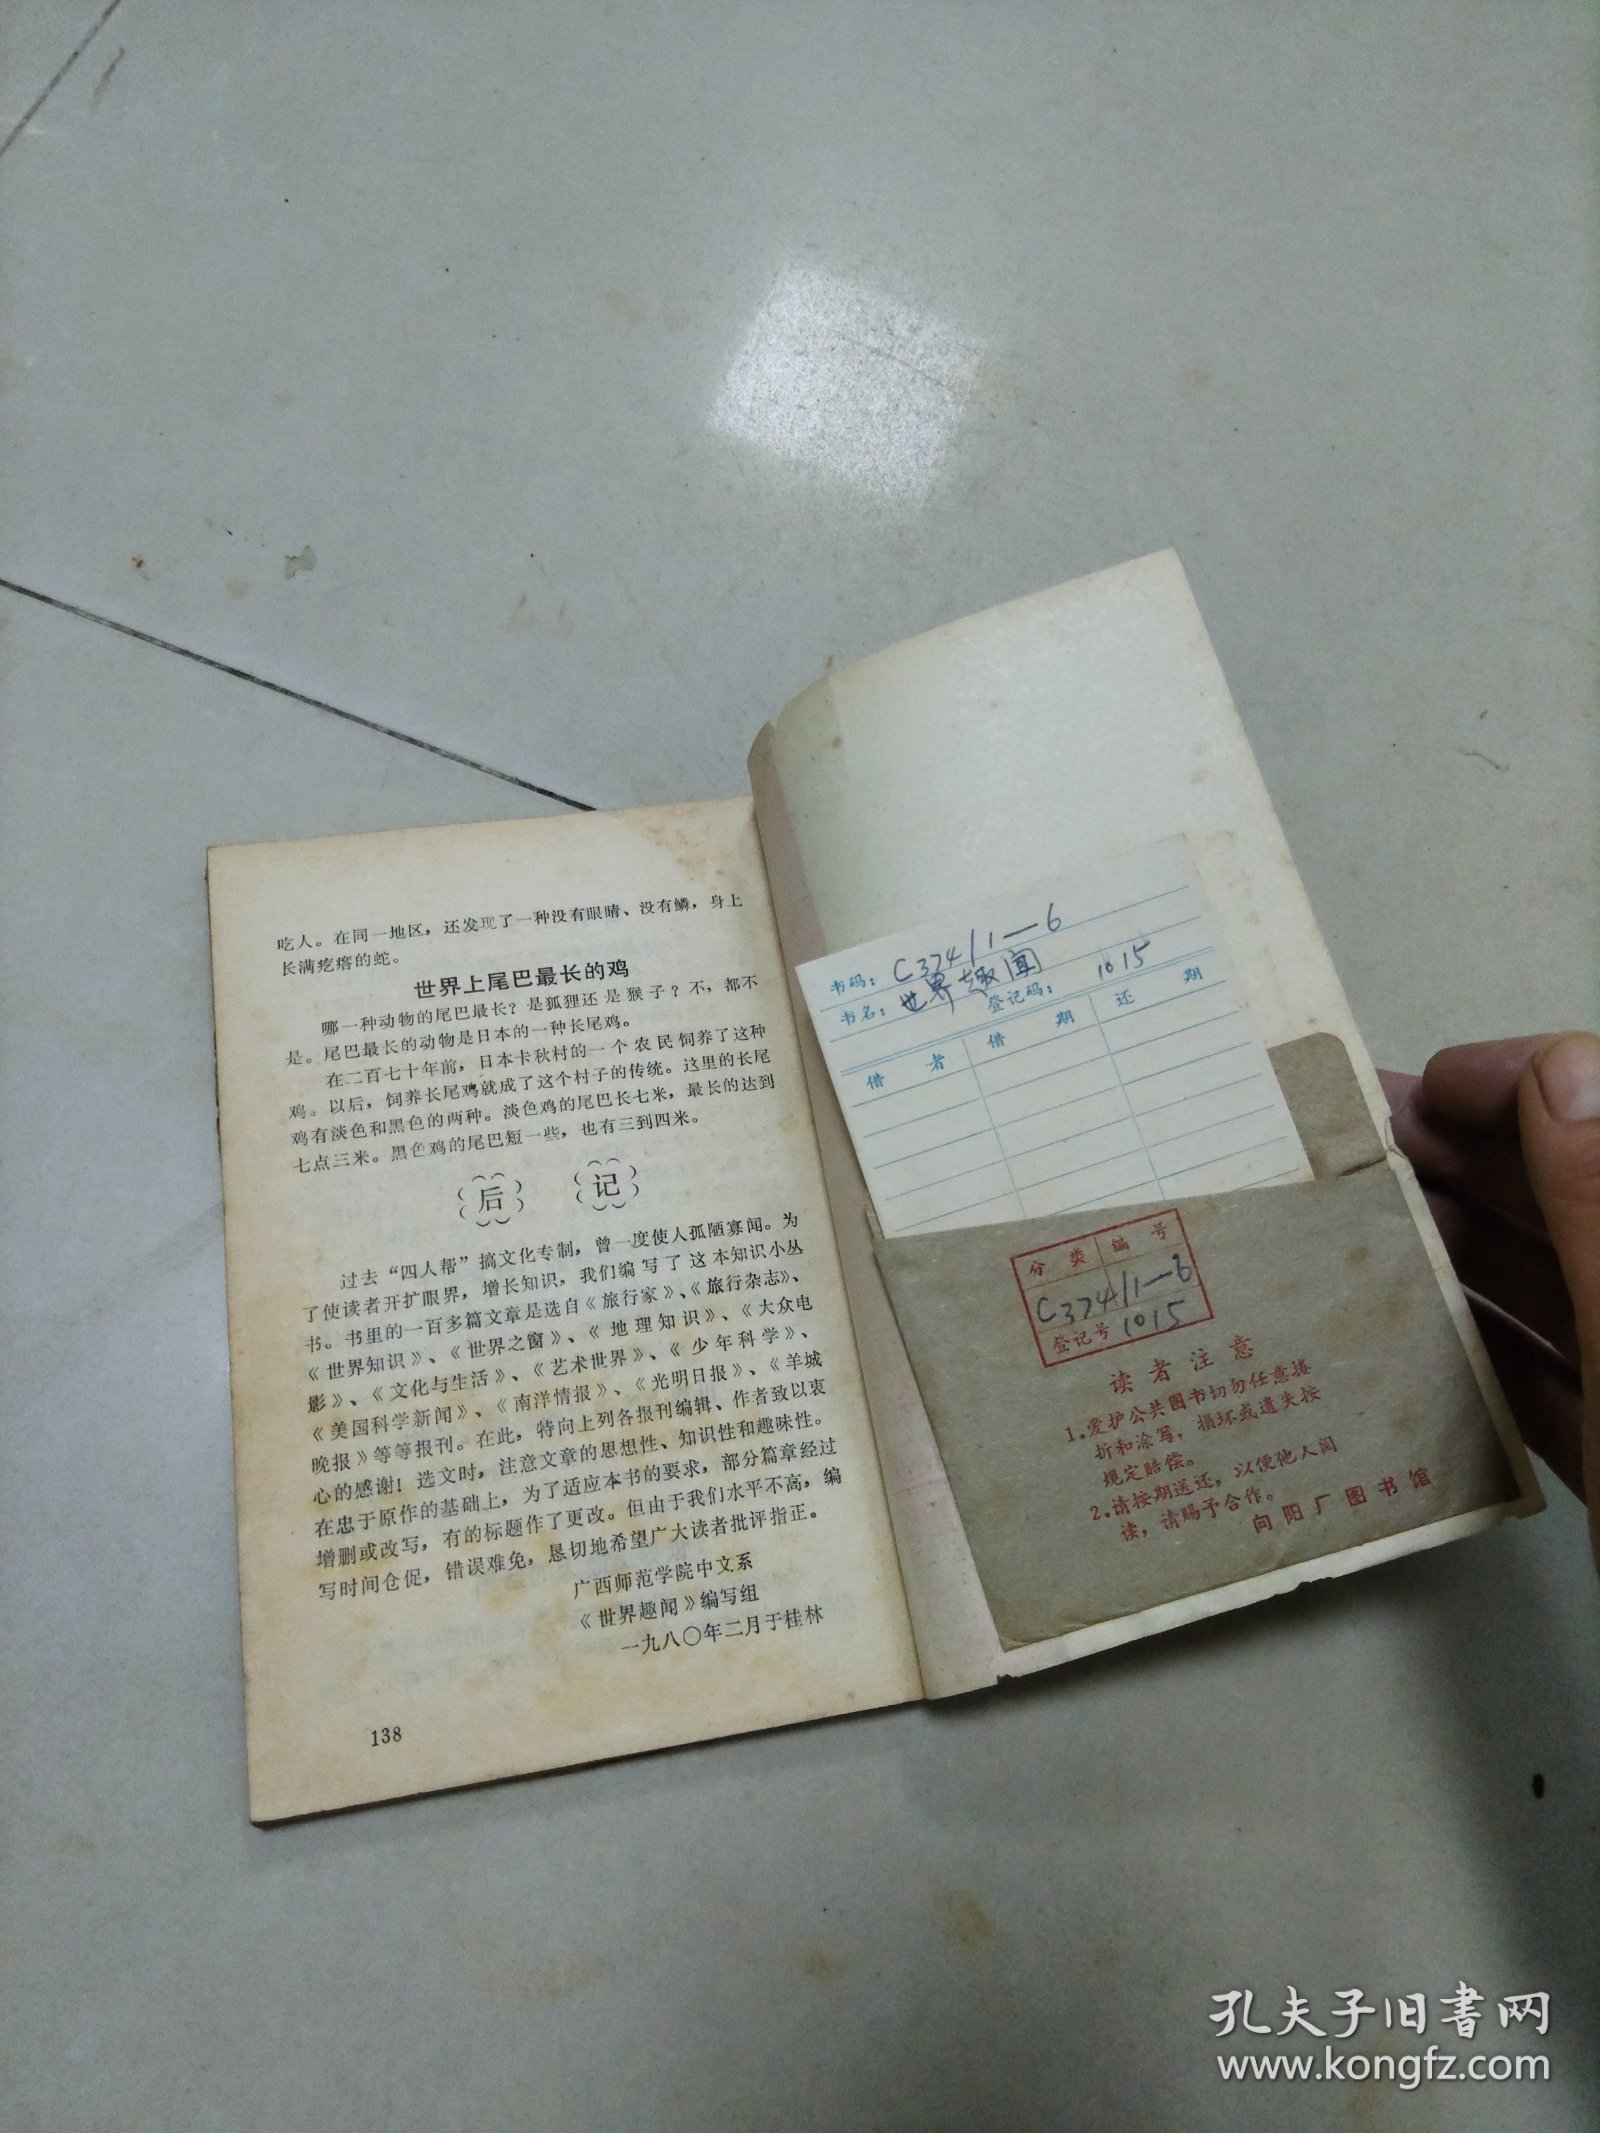 吃人。在同一地区，还发现了一种没有眼睛、没有鳞，身上
长满疙瘩的蛇。
世界上尾巴最长的鸡
哪一种动物的尾巴最长？是狐狸还是猴子？不，都不
是。尾巴最长的动物是日本的一种长尾鸡。
在二百七十年前，日本卡秋村的一个农民饲养了这种
鸡。以后，饲养长尾鸡就成了这个村子的传统。这里的长尾
鸡有淡色和黑色的两种。淡色鸡的尾巴长七米，最长的达到
七点三米。黑色鸡的尾巴短一些，也有三到四米。
后记
过去“四人帮”搞文化专制，曾一度使人孤陋寡闻。为
了使读者开扩眼界，增长知识，我们编写了这本知识小丛
书。书里的一百多篇文章是选自《旅行家》、《旅行杂志》、
《世界知识》、《世界之窗》、《地理知识》、《大众电
影》、《文化与生活》、《艺术世界》、《少年科学》、
《美国科学新闻》、《南洋情报》、《光明日报》、《羊城
晚报》等等报刊。在此，特向上列各报刊编辑、作者致以衷
心的感谢！选文时，注意文章的思想性、知识性和趣味性。
在忠于原作的基础上，为了适应本书的要求，部分篇章经过
增删或改写，有的标题作了更改。但由于我们水平不高，编
写时间仓促，错误难免，恳切地希望广大读者批评指正。
广西师范学院中文系
《世界趣闻》编写组
一九八〇年二月于桂林
138
书码：C374/1—6
书名：世界趣闻 登记码：1015
借者 借期 还期
分类编号
C374/1—6
登记号 1015
读者注意
1.爱护公共图书切勿任意卷
折和涂写，损坏或遗失按
规定赔偿。
2.请按期送还，以便他人阅
读，请赐予合作。
向阳厂图书馆
孔夫子旧书网
www.kongfz.com